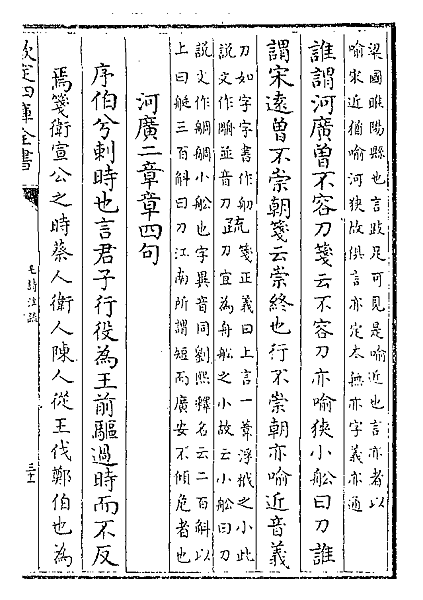 梁國睢陽縣也言跂足可見是喻近也言亦者以
喻宋近猶喻河狹故俱言亦定本無亦字義亦通
誰謂河廣曾不容刀箋云不容刀亦喻狹小船曰刀誰
謂宋遠曾不崇朝箋云崇終也行不崇朝亦喻近音義
刀如字字書作舠疏箋正義曰上言一葦浮栰之小此
說文作𦩍並音刀刀宜為舟船之小故云小船曰刀
說文作𦩍𦩍小船也字異音同劉熙釋名云二百斛以
上曰艇三百斛曰刀江南所謂短而廣安不傾危者也
河廣二章章四句
序伯兮刺時也言君子行役為王前驅過時而不反
焉箋衛宣公之時蔡人衛人陳人從王伐鄭伯也為
欽定四庫全書
毛詩注疏
三十二